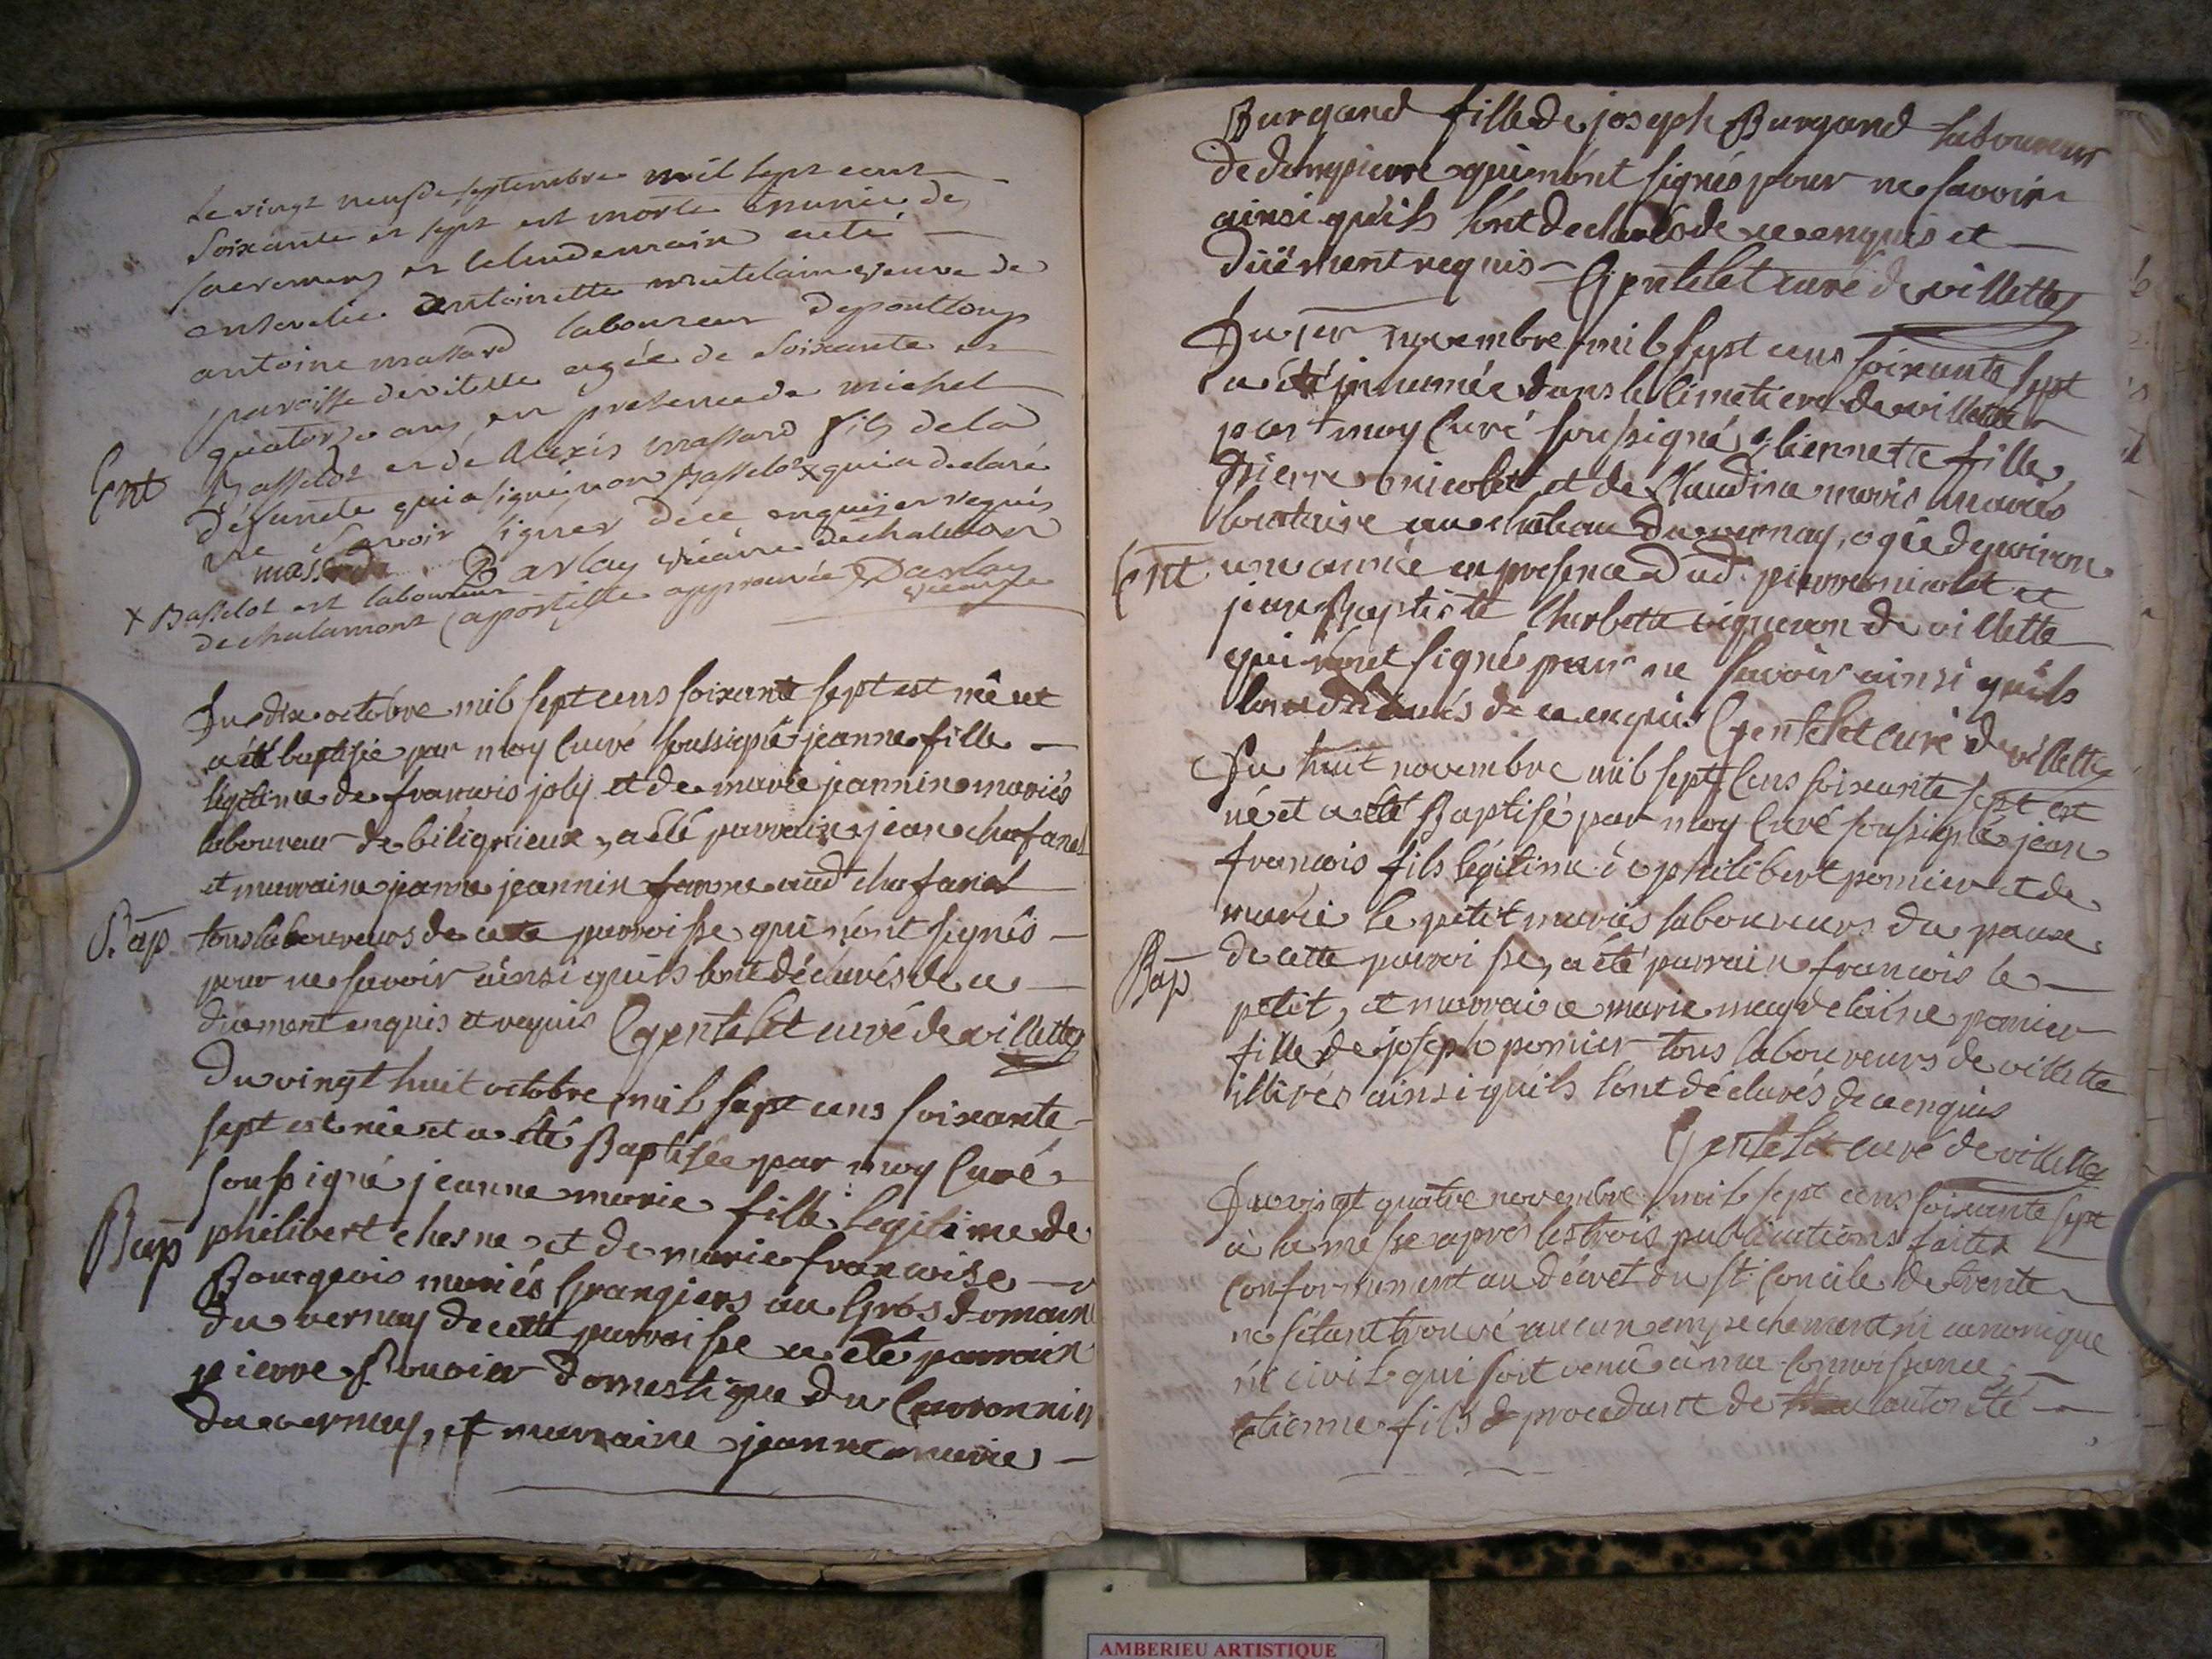 Le vingt neuf de septembre mil sept cent
soixante et sept est morte munie des
sacremens et le lendemain a eté
ensevelie antoinette veuve de
antoine massard laboureur de pontloup
parroisse de vilette agée de soixante et
quatorze ans en presence de michel
Basselot et de Alexis massard fils de la
défunte qui a signé non Basselot x qui a declaré
ne savoir signer de ce enquis et requis
massard Darlay vicaire de chalamon
x Basselot est laboureur
de chalamont apostille approuvée Darlay
vicaire
Ent
Du dix octobre mil sept cens soixante sept est née et
a été baptisée par moy Curé soussigné jeanne fille
légitime de francois joly et de marie jeannin mariés
laboureur de biligneux, a été parrain jean chafanel
et marraine jeanne jeannin femme aud chafanel
Bap
tous laboureurs de cette parroisse qui n'ont signés
pour ne savoir ainsi quils lont déclarés de ce
duement enquis et requis Gentelet curé de villette
Du vingt huit octobre mil sept cens soixante
sept est née et a été Baptisée par moy Curé
soussigné jeanne marie fille legitime de
Bap
philibert chesne et de marie francoise
Bourgeois mariés Grangiers au Gros domaine
du vernay de cette parroisse a été parrain
pierre Bouvier domestique du
du vernay, et marraine jeanne marie
Burgand fille de joseph Burgand laboureur
de dompierre qui n'ont signés pour ne savoir
ainsi qu'ils l'ont declarés de ce enquis et
düement requis Gentelet curé de villette
Du 1er novembre mil sept cens soixante sept
a été innumée dans le cimetiere de villette
par moy Curé soussigné, etiennette fille
pierre nicolet et de Claudine mariés
locataire au chateau du vernay, agée denviron
Ent
une année en presence dud. pierre nicolet et
jean Baptiste Cherbette vigneron de villette
qui n'ont signé pour ne savoir ainsi quils
lont déclarés de ce enquis Gentelet curé de villette
Du huit novembre mil sept Cens soixante sept est
né et a été Baptisé par moy Curé soussigné jean
francois fils légitime de philibert pomier et de
marie le petit mariés laboureurs du
Bap
de cette parroisse, a été parrain francois le
petit, et marraine marie magdelaine pomier
fille de joseph pomier tous laboureurs de villette
illirés ainsi quils l'ont déclarés de ce enquis
Gentelet curé de villette
Du vingt quatre novembre mil sept cens soixante sept
a la messe apres les trois publications faites
conformement au décret du st. Concile de trente
ne s'étant trouvé aucun empechement ni canonique
ni civile qui soit venu a ma connoissance,
etienne fils procedant de autorité
AMBERIEU ARTISTIQUE